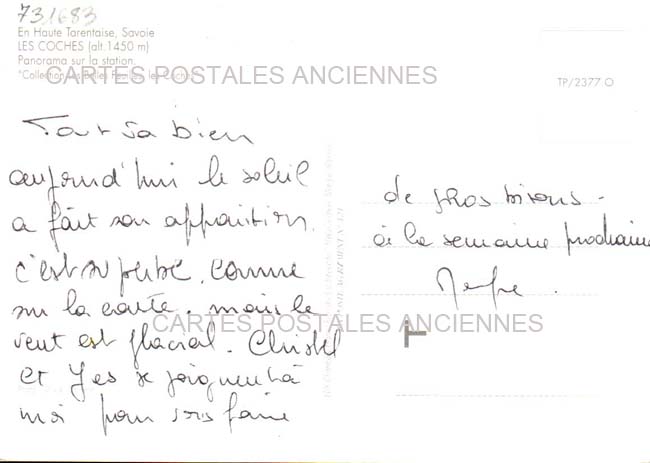 731683
En Haute Tarentaise, Savoie
LES COCHES (alt. 1450 m)
Panorama sur la station.
"Collection Les Belles Feuilles les Coches"
CARTES POSTALES ANCIENNES
TP/2377 O
Tout va bien
aujourd'hui le soleil
a fait son apparition.
c'est superbe. comme
sur la carte. mais le
vent est glacial. Christel
et Yes se joignent à
moi pour vous faire
de gros bisous -
à la semaine prochaine
CARTES POSTALES ANCIENNES